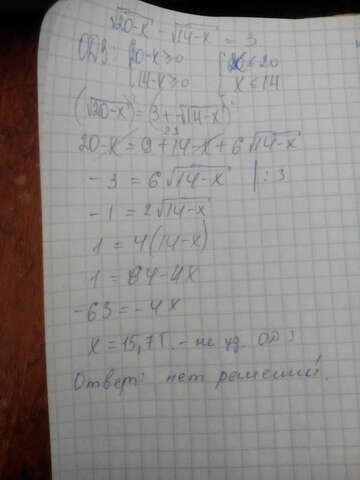 √20-x - √14-x = 3
ОДЗ: {20-x≥0 {x≤20
14-x≥0 x≤14
(√20-x)² = (3+√14-x)²
20-x = 9+14-x+6√14-x
23
-3 = 6√14-x | :3
-1 = 2√14-x
1 = 4(14-x)
1 = 64-4x
-63 = -4x
x = 15,75 - не уд. ОДЗ
Ответ: нет решений.